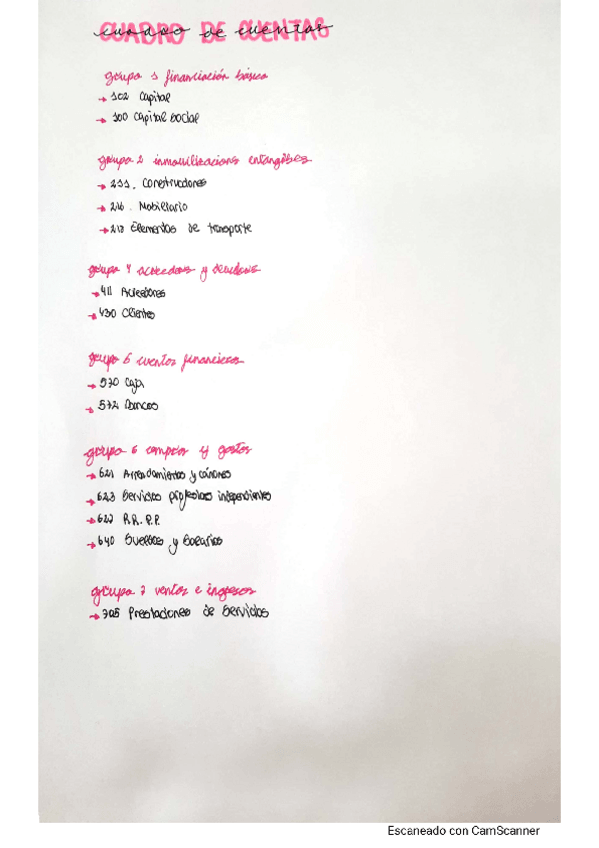 CUADRO DE CUENTAS
cuadro de cuentas
grupo 1 financiación básica
→ 102 Capital
→ 100 Capital social
grupo 2 inmovilizacions entangibles
→ 211. Construcciones
→ 216. Mobiliario
→ 218 Elementos de transporte
grupo 4 acreedores y deudores
→ 411 Acreedores
→ 430 Clientes
grupo 5 cuentas financieras
→ 570 Caja
→ 572 Bancos
grupo 6 compras y gastos
→ 621 Arrendamientos y cánones
→ 623 Servicios profesionales independientes
→ 627 R.R.P.P.
→ 640 Sueldos y Salarios
grupo 7 ventas e ingresos
→ 705 Prestaciones de Servicios
Escaneado con CamScanner